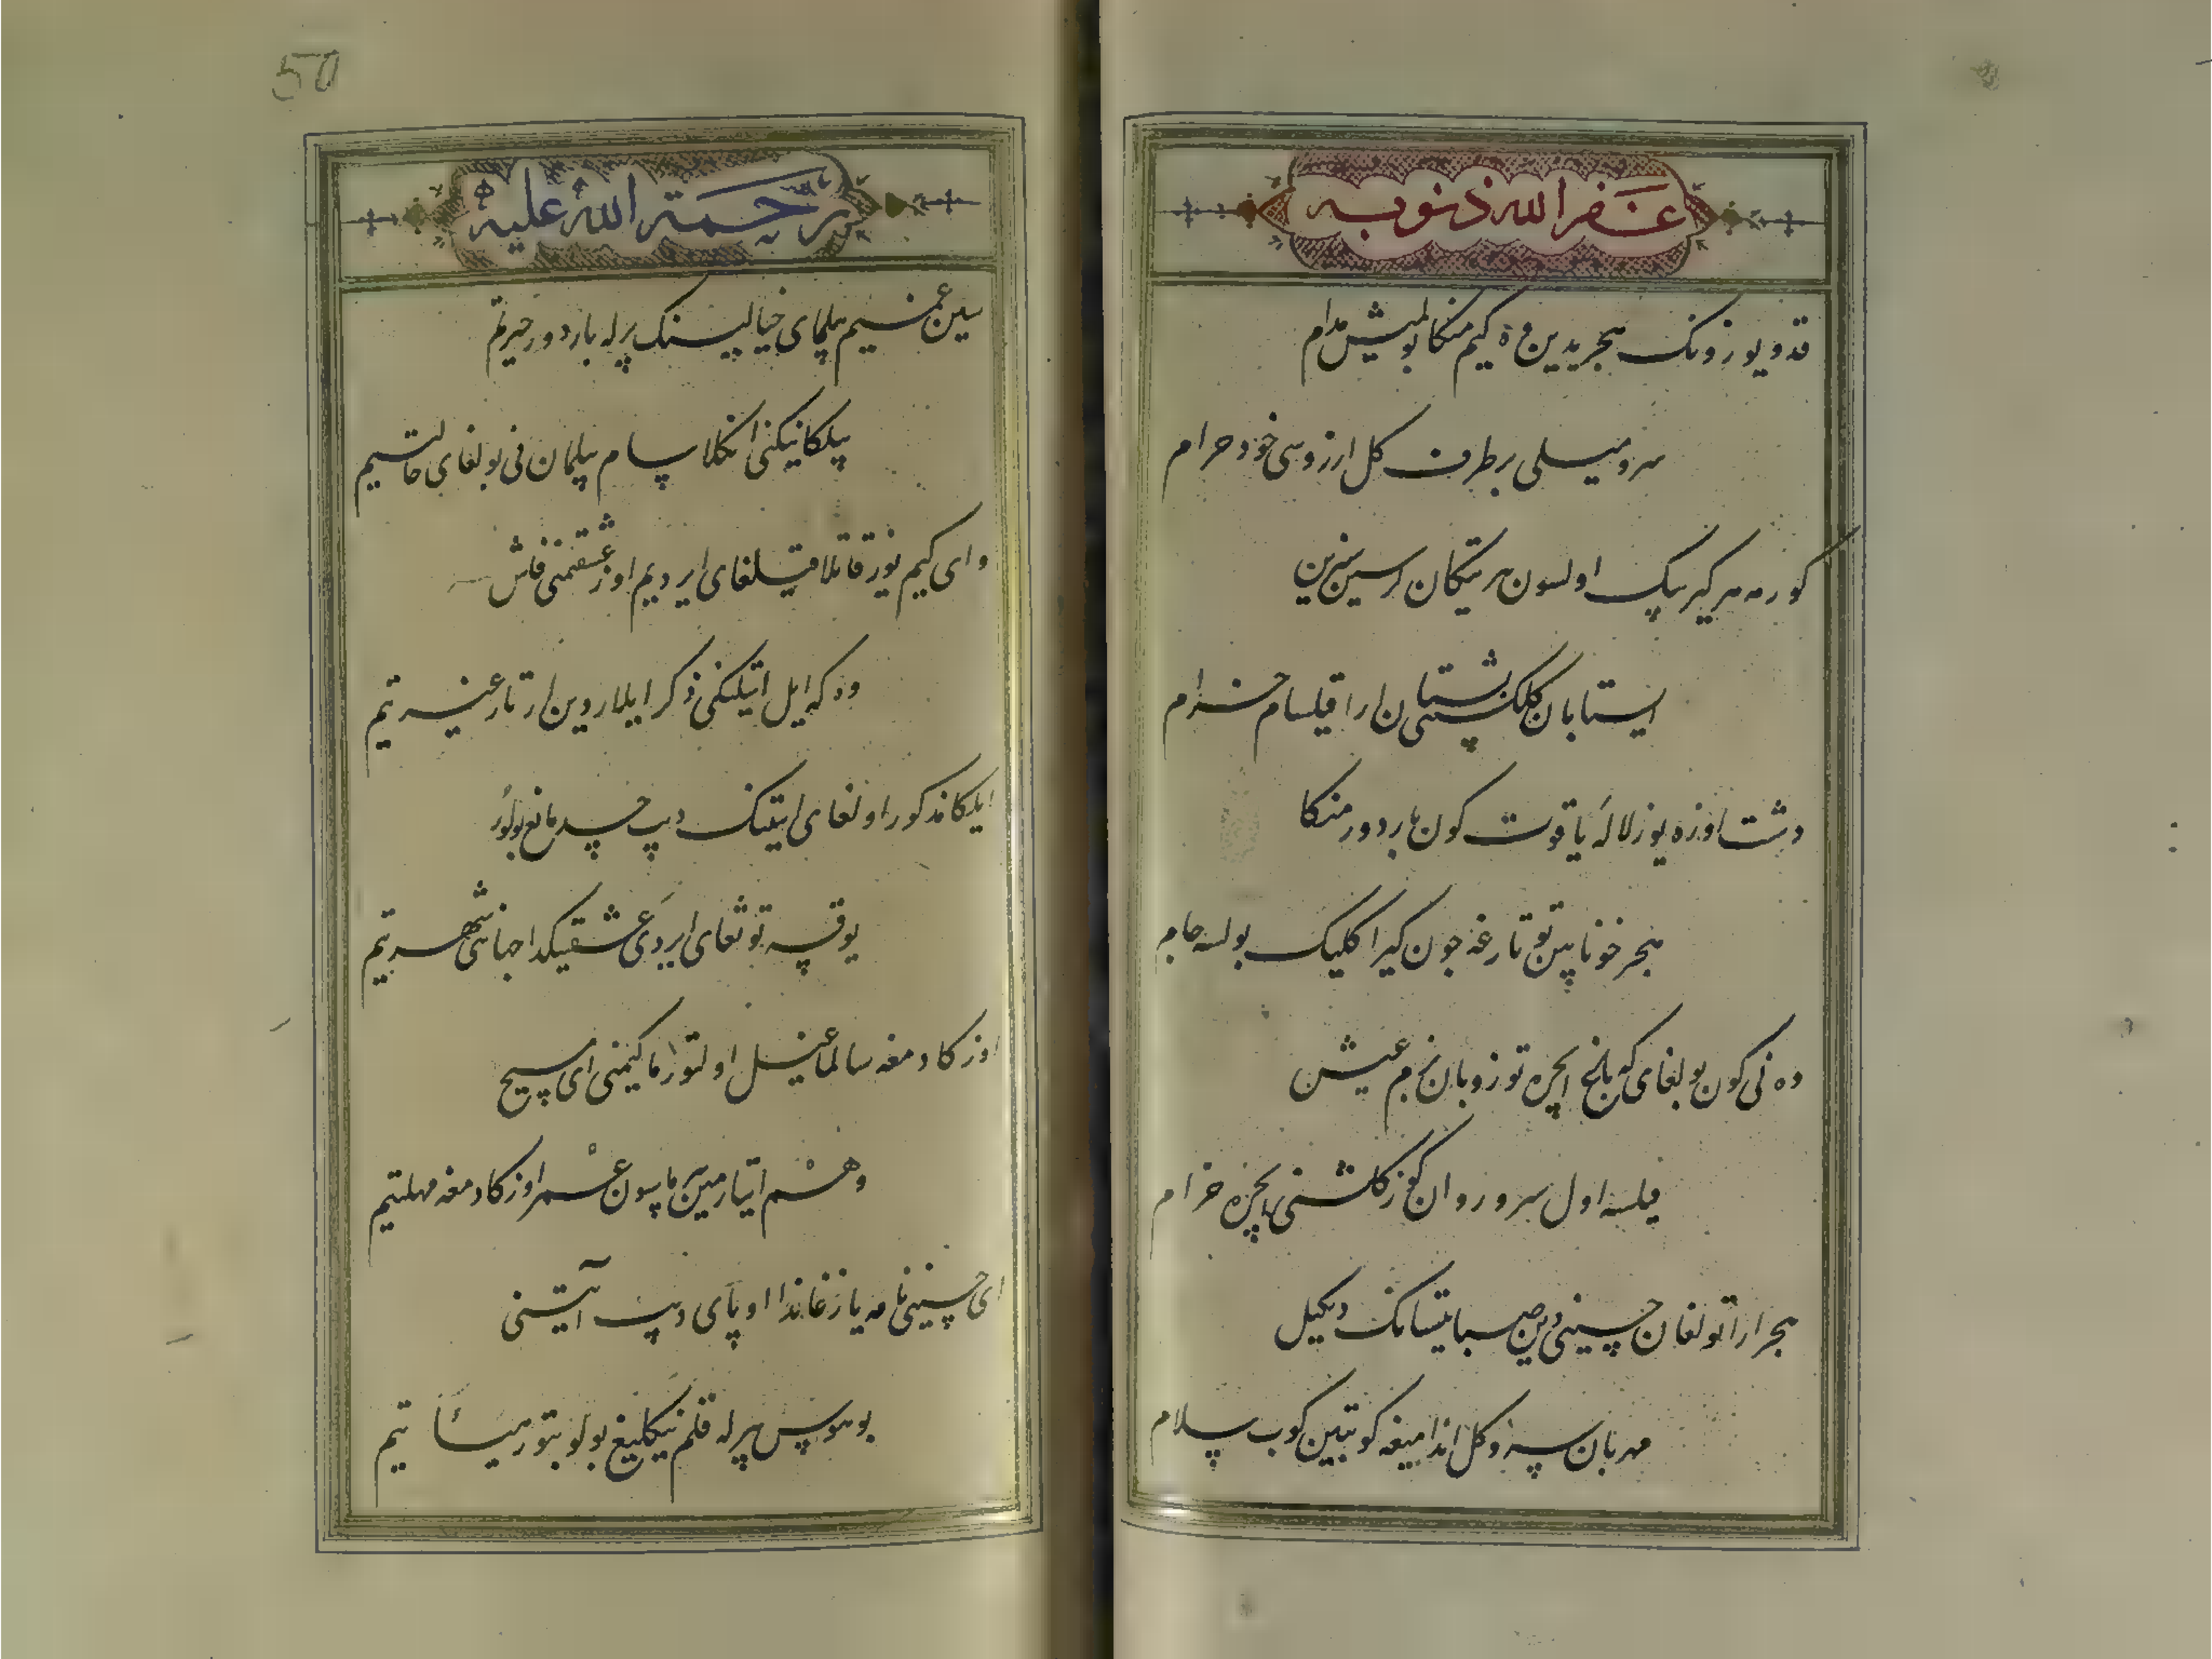 غفر الله ذنوبه
قد و یوزونک هجریدین وه کیم منکا بولمیش مدام
سرو میلی بر طرف کل ارزوسی خود حرام
کورمه سر کیربیک اولسون هر تیکان کر سین سیزین
ایستابان کلکشتی بستان ارا قیلسام خرام
دشت اوزه یوز لاله یاقوت کون بار دور منکا
هجر خونابین توتارغه جون کیراکلیک بولسه جام
وه نی کون بولغای که باغ ایجره توزوبان بزم عیش
قیلسه اول سرو روان کوز کلشنی ایجره خرام
هجر ارا تولغان حسینی دین صبا یتسانک دیکیل
مهربان سه و کل اندامیغه کوبتین کوب سلام
رحمة الله علیه
سین غمنیم بیلمای خیالینک بیرله باردور حیرتم
بیلکانیکنی انکلاسام بیلمان نی بولغای حالتیم
وای کیم یوز قاتلا قیلغای ایردیم اوز عشقمنی فاش
وه که ایل اتینکنی ذکر ایلاردین ارتار غیرتیم
ایلکا مذکور اولغای اتینک دیب حسد مانع بولور
یوقسه توتغای ایردی عشقینکدا جهانی شهرتیم
اوزکا دمغه سالما غیل اولتورماکیمنی ای مسیح
وهم ایتارمین بیرماسون عمر اوزکا دمغه مهلتیم
ای حسینی نامه یازغاندا اوبای دیب اتینی
بو هوس بیرله قلم نیکلیغ بولوبتور هیئاتیم
50